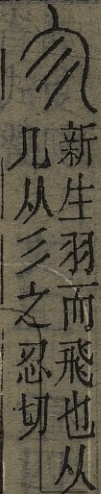 新生羽而飛也从
几从彡之忍切